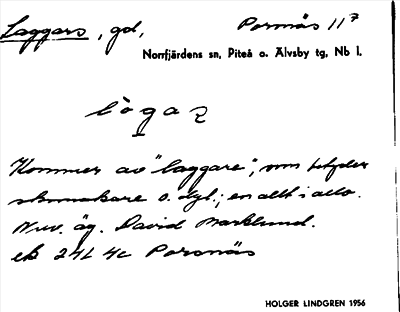 Laggars, gd, Porsnäs 11⁷
Norrfjärdens sn, Piteå o. Älvsby tg, Nb l.
Kommer av "laggare", som betyder
skomakare o. dyl.; en allt i allo.
Nuv. äg. David Marklund.
ek 24L 4c Porsnäs
HOLGER LINDGREN 1956